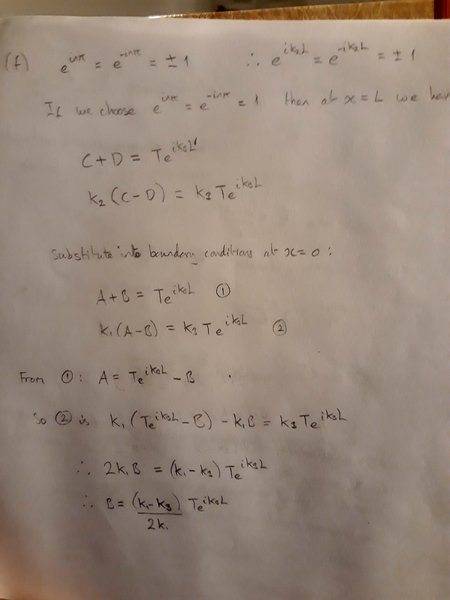 (f) e^{inπ} = e^{-inπ} = ±1 ∴ e^{ik₂L} = e^{-ik₂L} = ±1
If we choose e^{inπ} = e^{-inπ} = 1 then at x = L we hav
C + D = Te^{ik₃L}
k₂(C - D) = k₃Te^{ik₃L}
Substitute into boundary conditions at x = 0 :
A + B = Te^{ik₃L} ①
k₁(A - B) = k₃Te^{ik₃L} ②
From ① : A = Te^{ik₃L} - B
So ② is k₁(Te^{ik₃L} - B) - k₁B = k₃Te^{ik₃L}
∴ 2k₁B = (k₁ - k₃)Te^{ik₃L}
∴ B = (k₁ - k₃)/2k₁ Te^{ik₃L}